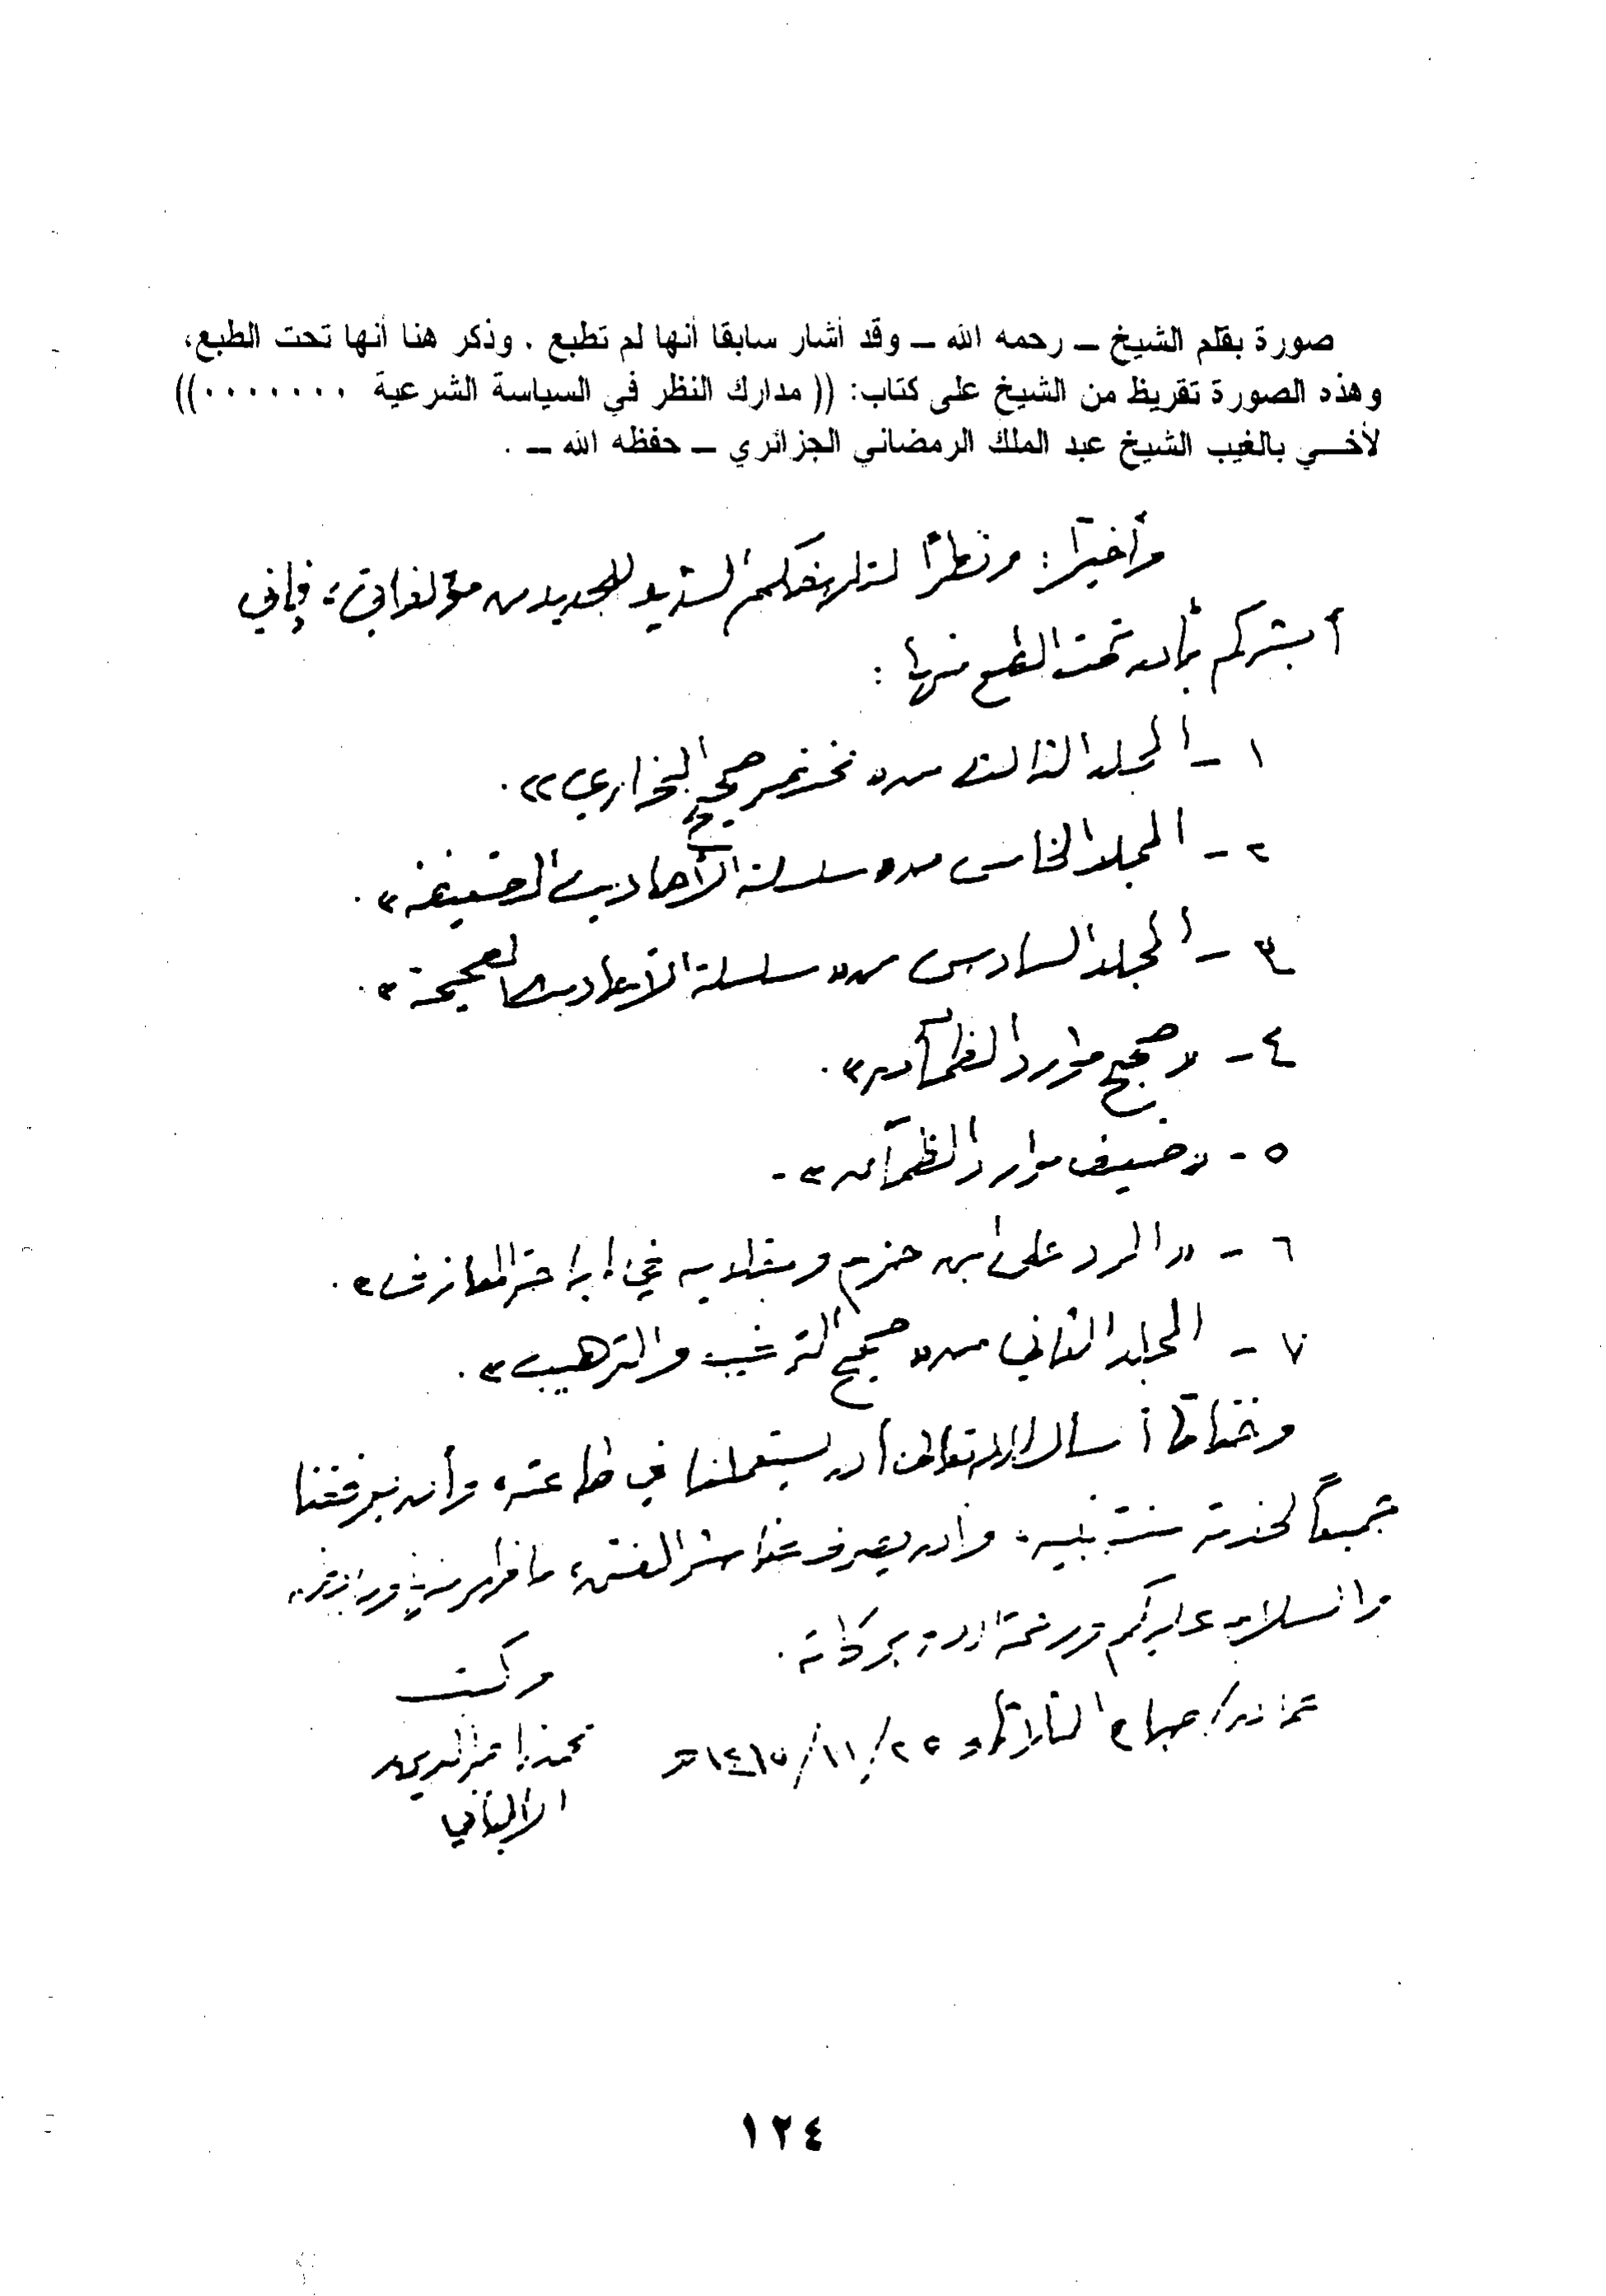 صورة بقلم الشيخ – رحمه الله – وقد أشار سابقا أنها لم تطبع . وذكر هنا أنها تحت الطبع،
وهذه الصورة تقريظ من الشيخ على كتاب: (( مدارك النظر في السياسة الشرعية ٠٠٠٠٠٠٠))
لأخي بالغيب الشيخ عبد الملك الرمضاني الجزائري – حفظه الله – .
وأخيراً : ونظراً لتلهفكم الشديد للجديد من مؤلفاتي؛ فإني
أبشركم بأن تحت الطبع منها :
١ - المجلد الثالث من « مختصر صحيح البخاري » .
٢ - المجلد الخامس من « سلسلة الأحاديث الضعيفة » .
٣ - المجلد السادس من « سلسلة الأحاديث الصحيحة » .
٤ - « صحيح موارد الظمآن » .
٥ - « ضعيف موارد الظمآن » .
٦ - « الرد على ابن حزم ومقلديه في إباحة المعازف » .
٧ - المجلد الثاني من « صحيح الترغيب والترهيب » .
وختاماً أسأل الله تعالى أن يستعملنا في طاعته، وأن يوفقنا
جميعاً لخدمة سنة نبيه، وأن يصرف عنا شر الفتن، ما ظهر منها وما بطن.
والسلام عليكم ورحمة الله وبركاته .
وكتب
عمان / صباح الثلاثاء ٢٥/١١/١٤١٥ هـ
محمد ناصر الدين
الألباني
١٢٤